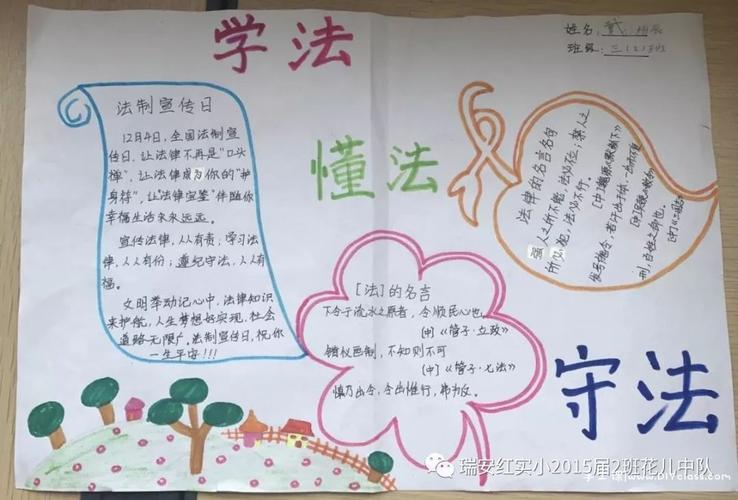 学法
姓名:
班级:三(2)班
法制宣传日
12月4日,全国法制宣
传日,让法律不再是“口头
禅”,让法律成为你的“护
身符”,让“法律宝鉴”伴随你
幸福生活永永远远。
宣传法律,人人有责;学习法
律,人人有份;遵纪守法,人人有
福。
文明举动记心中,法律知识
来护航,人生梦想好实现,社会
道路无限广。法制宣传日,祝你
一生平安!!!
懂法
法律的名言名句
强人之所不能,法必不立;禁人之
所必犯,法必不行。
发号施令,若汗出于体,一出而不复
刑,百姓之命也。
[法]的名言
下令于流水之原者,令顺民心也。
[中]《管子·立政》
错仪画制,不知则不可
[中]《管子·七法》
慎乃出令,令出惟行,弗为反。
守法
瑞安红实小2015届2班花儿中队
www.DIYclass.com